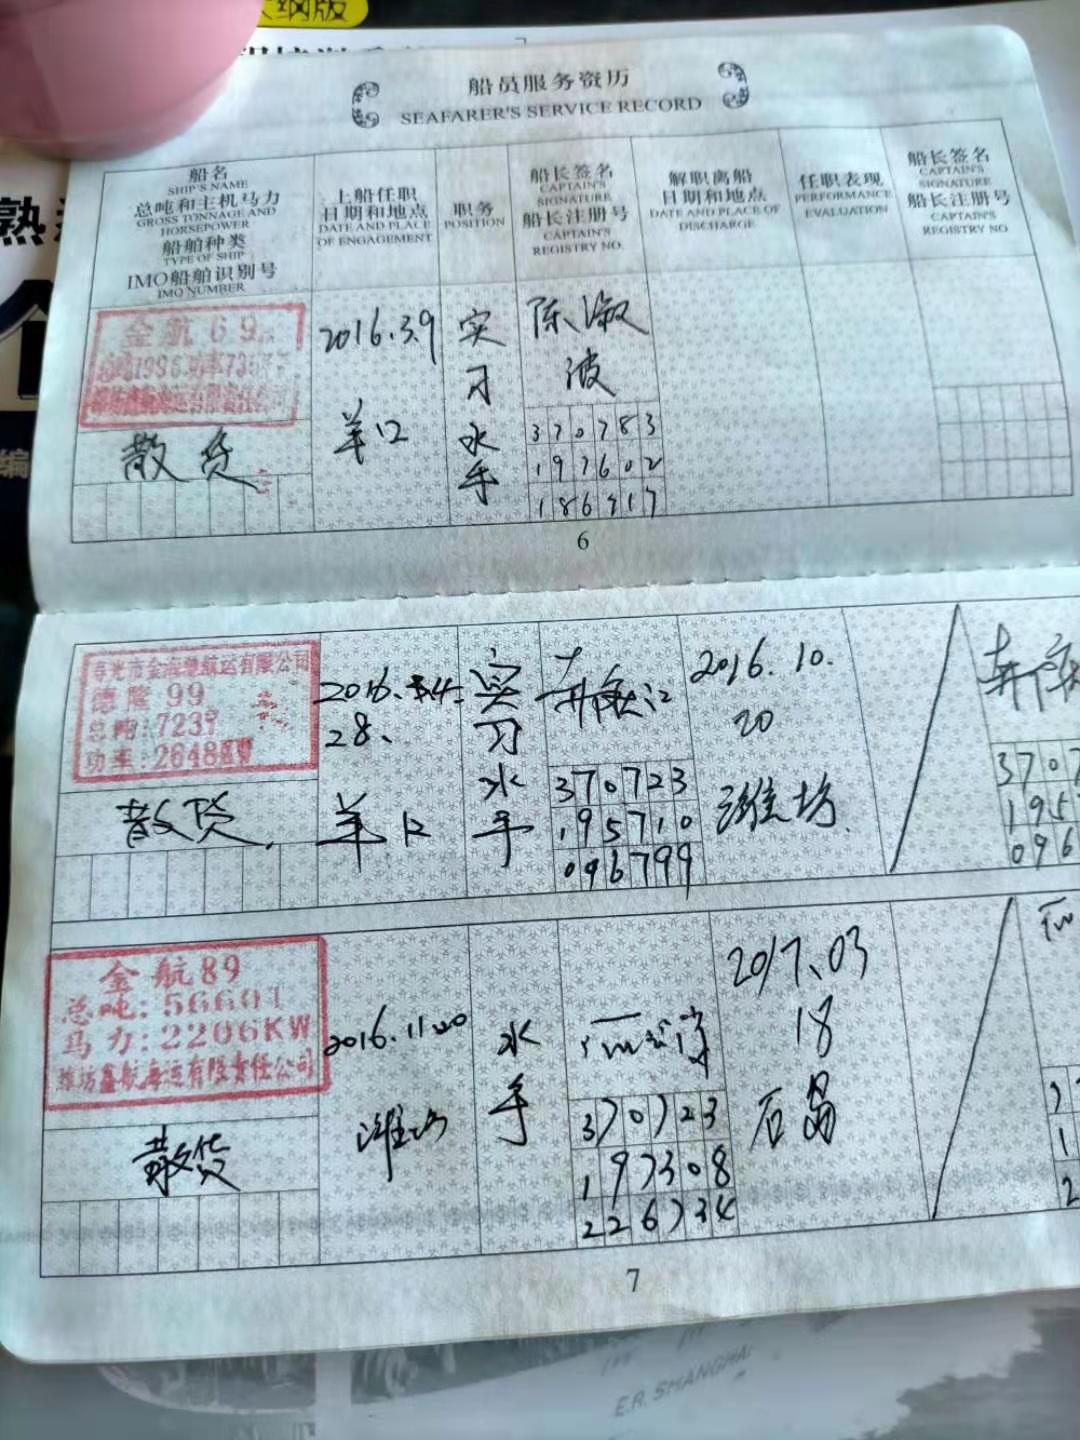 船员服务资历
SEAFARER'S SERVICE RECORD
船名
SHIP'S NAME
总吨和主机马力
GROSS TONNAGE AND
HORSEPOWER
船舶种类
TYPE OF SHIP
IMO船舶识别号
IMO NUMBER
上船任职
日期和地点
DATE AND PLACE
OF ENGAGEMENT
职务
POSITION
船长签名
CAPTAIN'S
SIGNATURE
船长注册号
CAPTAIN'S
REGISTRY NO.
解职离船
日期和地点
DATE AND PLACE OF
DISCHARGE
任职表现
PERFORMANCE
EVALUATION
船长签名
CAPTAIN'S
SIGNATURE
船长注册号
CAPTAIN'S
REGISTRY NO
金航69
散货
2016.3.9
羊口
实
习
水
手
陈淑
波
370783
197602
6
德隆99
总吨:7239
功率:2648KW
散货
28、
羊口
实
习
水
手
370723
195710
096799
2016.10.
20
潍坊
3707
195
096
金航89
马力:2206KW
潍坊鑫航海运有限责任公司
散货
2016.11.20
潍坊
水
手
370723
197308
226734
2017.03
18
石岛
7
E.R. SHANGHAI